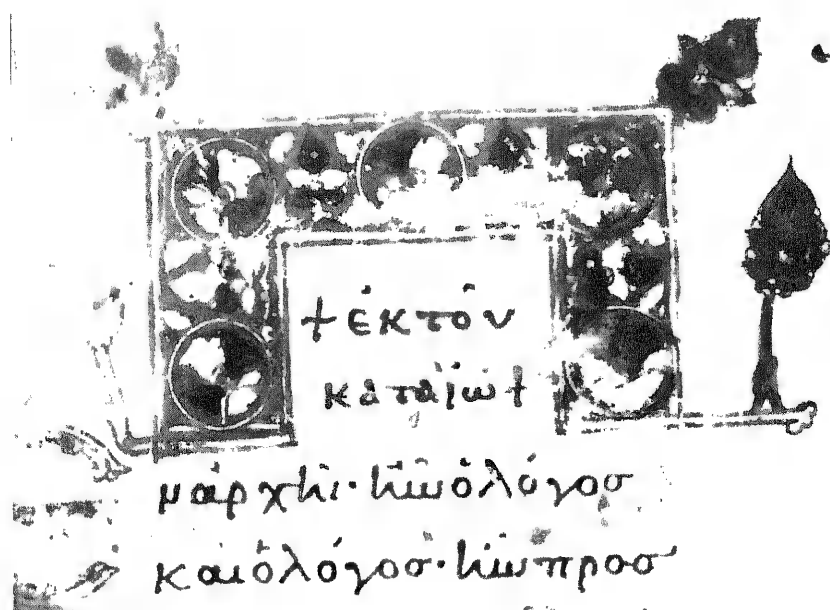 + ἐκ τὸν
κατὰ ἰω +
μ ἀρχῆι · ἦν ὁ λόγοσ
καὶ ὁ λόγοσ · ἦν προσ